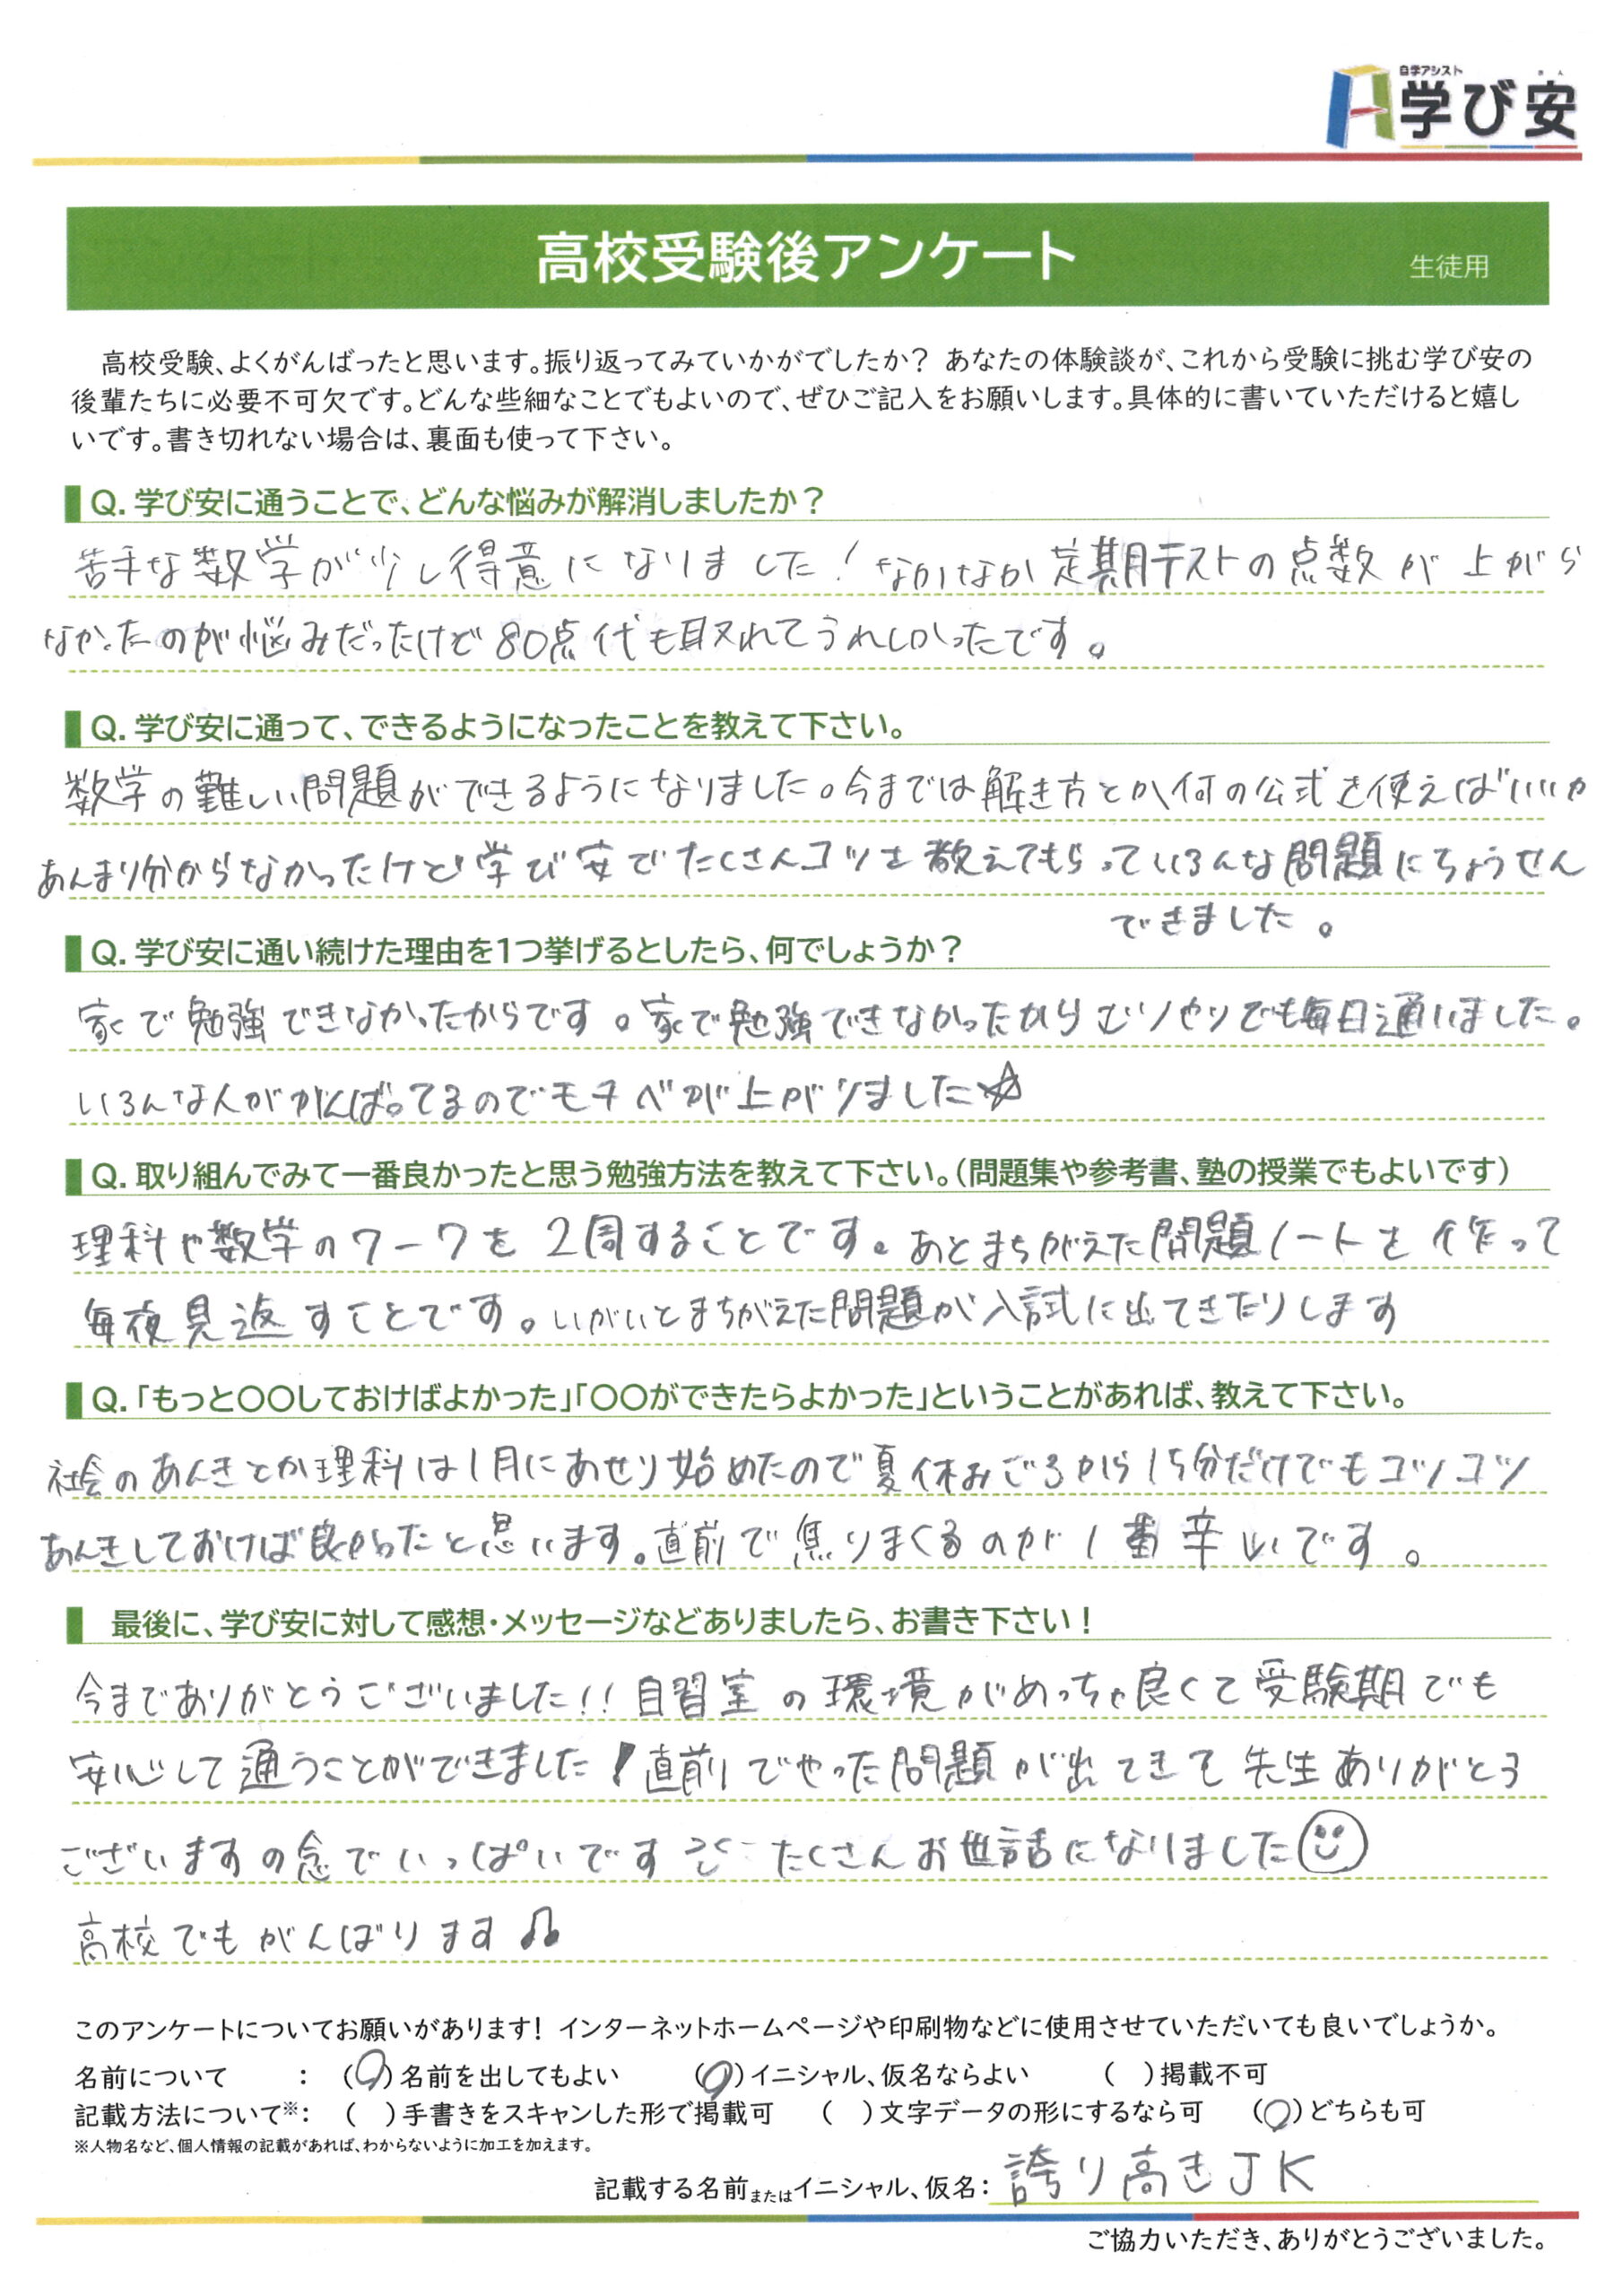 自学アシスト
学び安
高校受験後アンケート 生徒用
高校受験、よくがんばったと思います。振り返ってみていかがでしたか？ あなたの体験談が、これから受験に挑む学び安の
後輩たちに必要不可欠です。どんな些細なことでもよいので、ぜひご記入をお願いします。具体的に書いていただけると嬉し
いです。書き切れない場合は、裏面も使って下さい。
Q. 学び安に通うことで、どんな悩みが解消しましたか？
苦手な数学が少し得意になりました！なかなか定期テストの点数が上がら
なかったのが悩みだったけど80点代も取れてうれしかったです。
Q. 学び安に通って、できるようになったことを教えて下さい。
数学の難しい問題ができるようになりました。今までは解き方とか何の公式を使えばいいか
あんまり分からなかったけど学び安でたくさんコツを教えてもらっていろんな問題にちょうせん
できました。
Q. 学び安に通い続けた理由を1つ挙げるとしたら、何でしょうか？
家で勉強できなかったからです。家で勉強できなかったからむりやりでも毎日通いました。
いろんな人ががんばってるのでモチベが上がりました☆
Q. 取り組んでみて一番良かったと思う勉強方法を教えて下さい。（問題集や参考書、塾の授業でもよいです）
理科や数学のワークを2周することです。あとまちがえた問題ノートを作って
毎夜見返すことです。いがいとまちがえた問題が入試に出てきたりします
Q. 「もっと〇〇しておけばよかった」「〇〇ができたらよかった」ということがあれば、教えて下さい。
社会のあんきとか理科は1月にあせり始めたので夏休みごろから15分だけでもコツコツ
あんきしておけば良かったと思います。直前で焦りまくるのが1番辛いです。
最後に、学び安に対して感想・メッセージなどありましたら、お書き下さい！
今までありがとうございました!! 自習室の環境がめっちゃ良くて受験期でも
安心して通うことができました！直前でやった問題が出てきて先生ありがとう
ございますの念でいっぱいです たくさんお世話になりました
高校でもがんばります♫
このアンケートについてお願いがあります！ インターネットホームページや印刷物などに使用させていただいても良いでしょうか。
名前について ： （○）名前を出してもよい （○）イニシャル、仮名ならよい （ ）掲載不可
記載方法について※： （ ）手書きをスキャンした形で掲載可 （ ）文字データの形にするなら可 （○）どちらも可
※人物名など、個人情報の記載があれば、わからないように加工を加えます。
記載する名前またはイニシャル、仮名： 誇り高きJK
ご協力いただき、ありがとうございました。